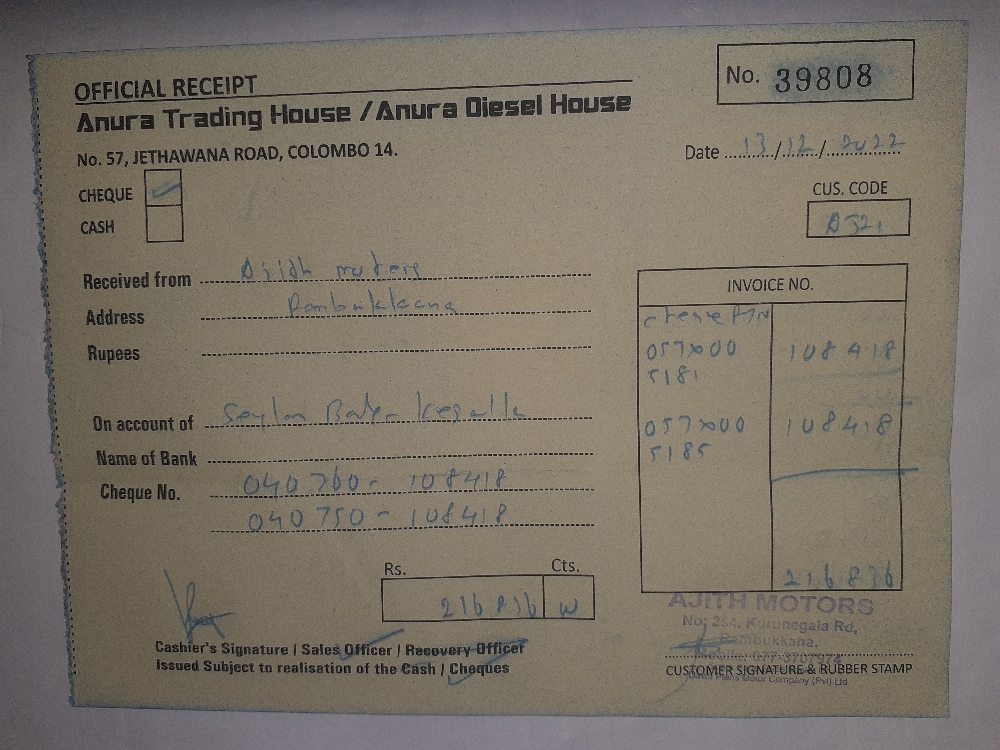 OFFICIAL RECEIPT
No. 39808
Anura Trading House / Anura Diesel House
No. 57, JETHAWANA ROAD, COLOMBO 14.
Date 13/12/2022
CHEQUE
CUS. CODE
CASH
Received from
INVOICE NO.
Address Rambukkana
Rupees
057X00 108418
5181
On account of Seylan
057X00 108418
5185
Name of Bank
Cheque No. 040760- 108418
040750- 108418
Rs. Cts.
216836
216836
AJITH MOTORS
No: 264, Kurunegala Rd,
Rambukkana.
Cashier's Signature / Sales Officer / Recovery Officer
Issued Subject to realisation of the Cash / Cheques
CUSTOMER SIGNATURE & RUBBER STAMP
Motor Company (Pvt) Ltd